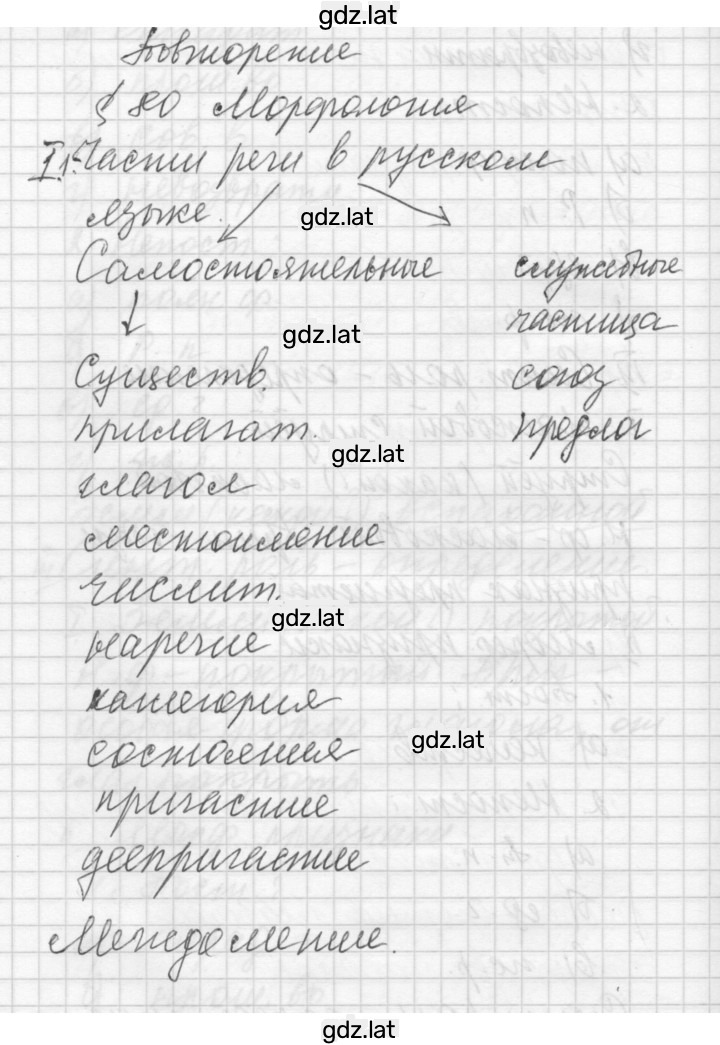 gdz.lat
Повторение
§ 80 Морфология
I 1. Части речи в русском
языке.
gdz.lat
Самостоятельные служебные
частица
gdz.lat
Существ. союз
прилагат. предлог
gdz.lat
глагол
местоимение
числит.
gdz.lat
наречие
категория
gdz.lat
состояния
причастие
деепричастие
Междометие.
gdz.lat